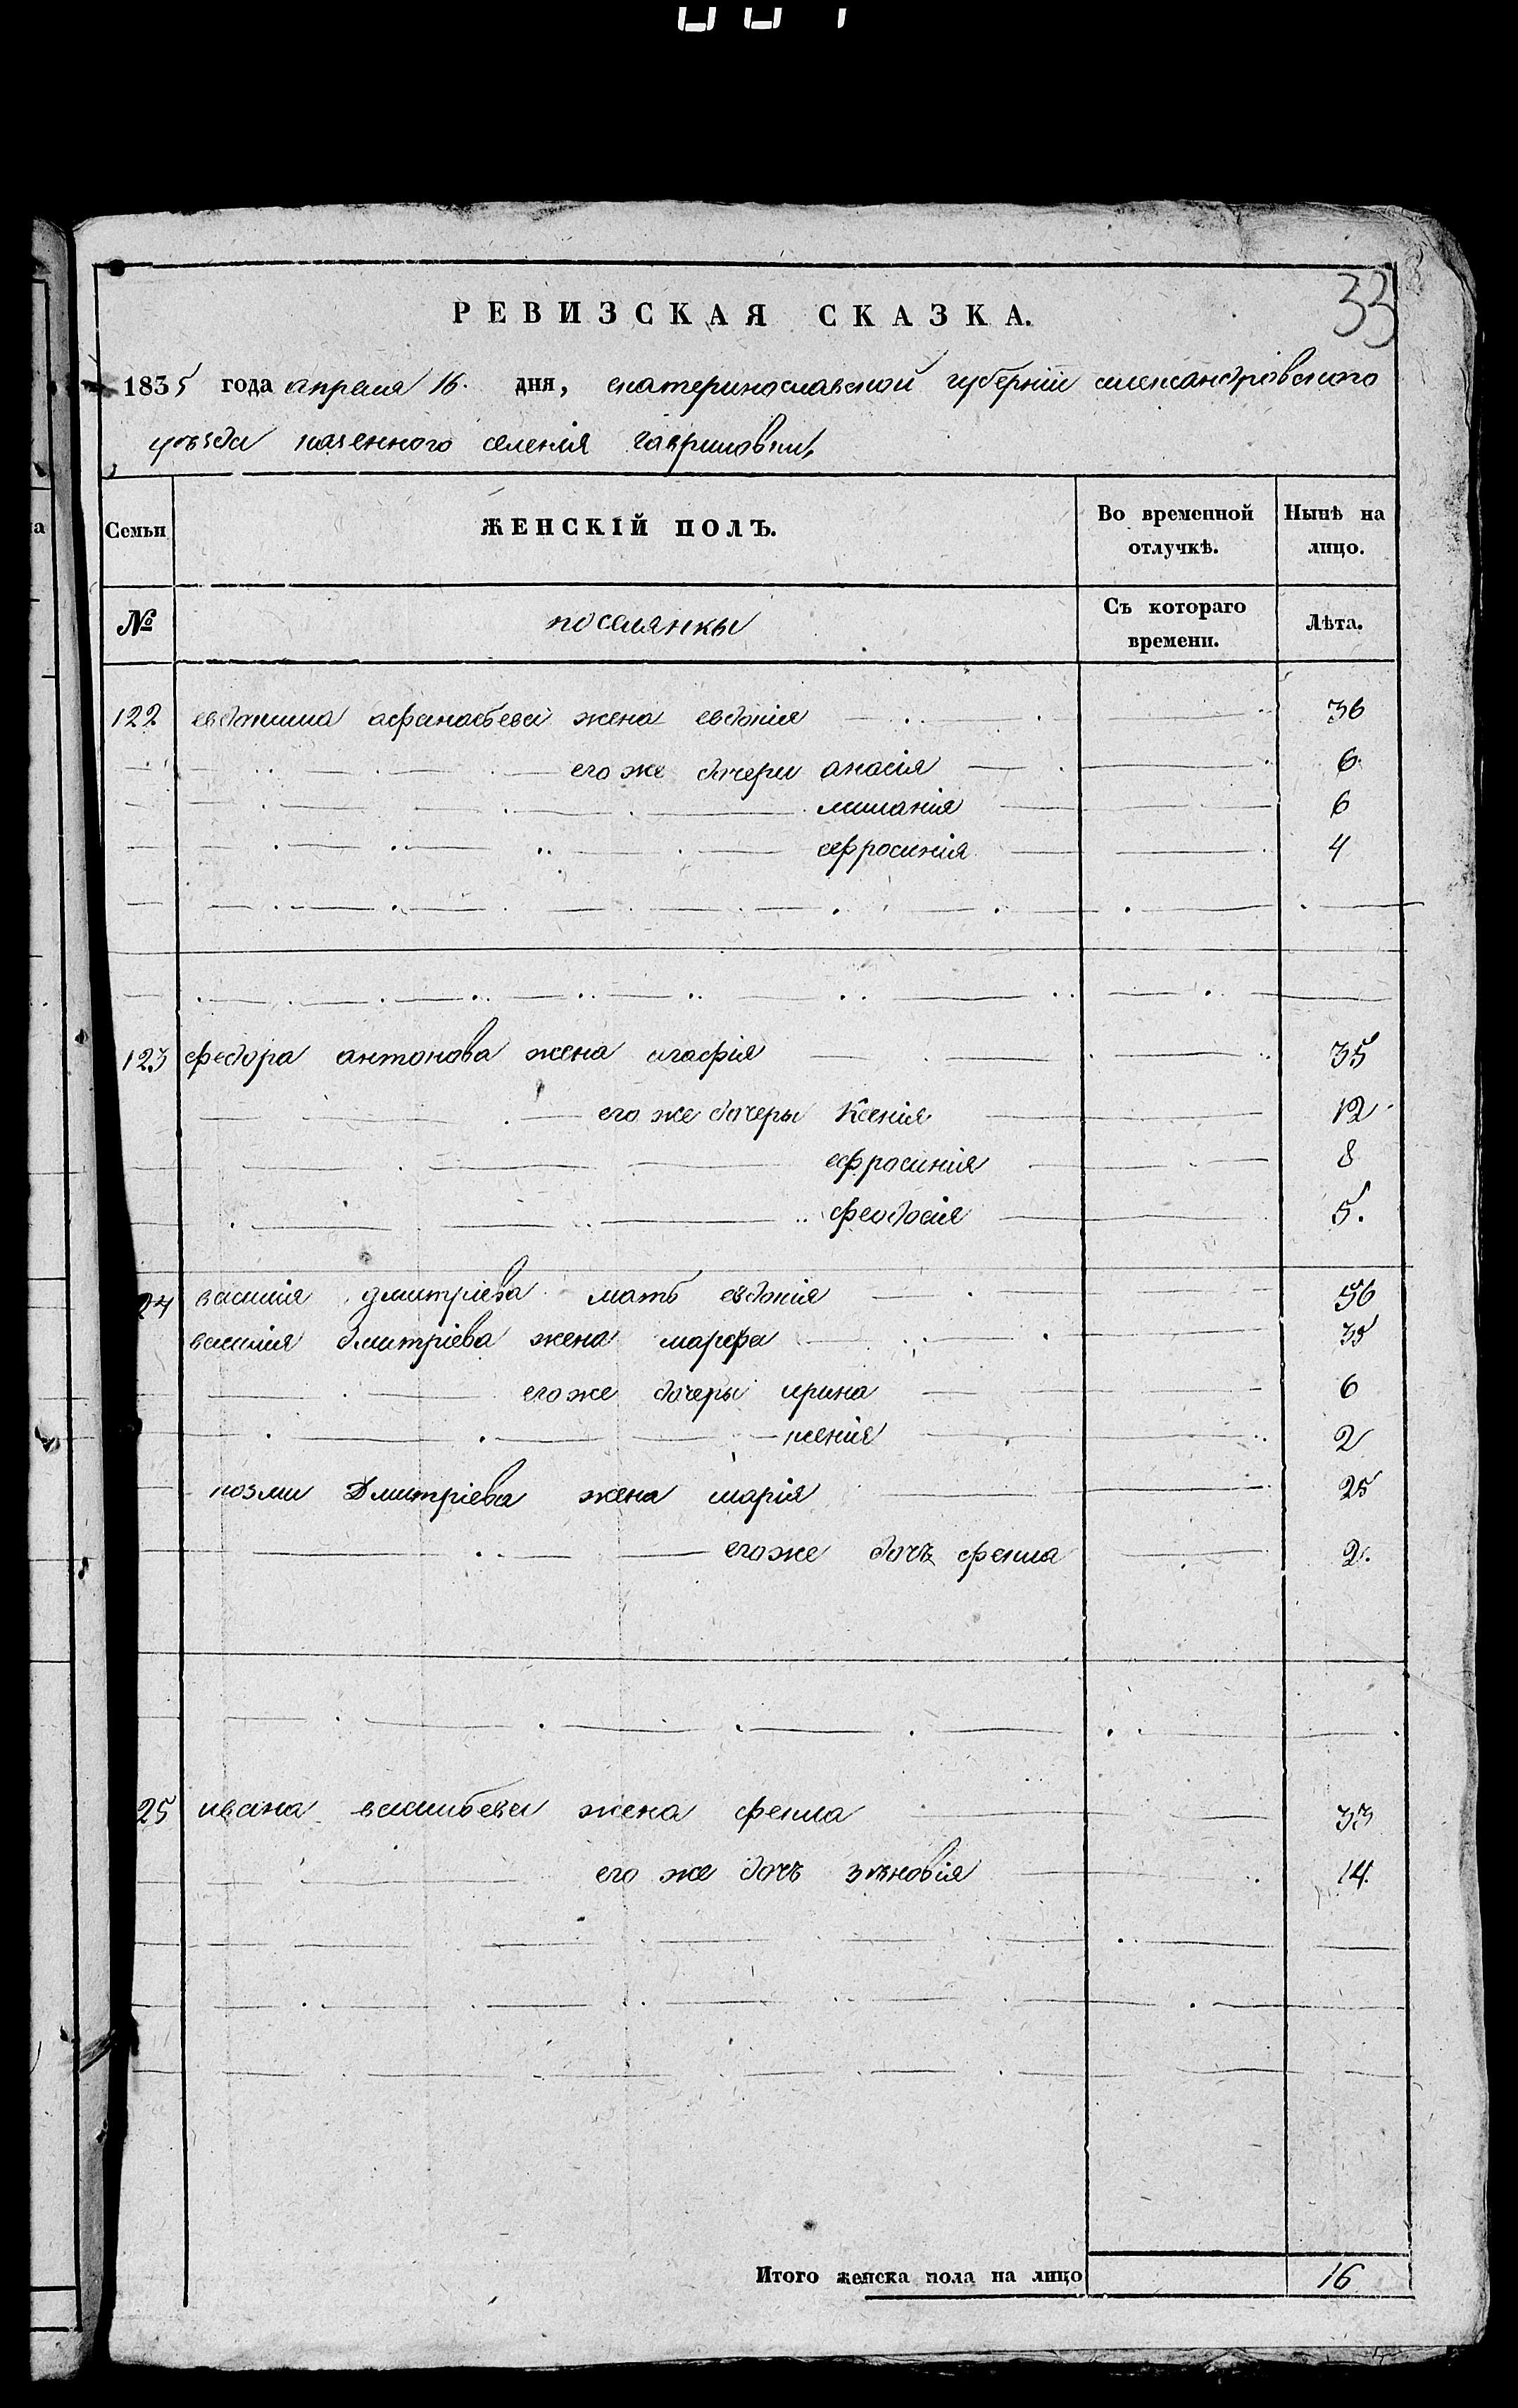 33
РЕВИЗСКАЯ СКАЗКА.
1835 года апреля 16. дня, екатеринославской губернiи александровского
уѣзда казенного селенiя гавриловки,
Семьи
ЖЕНСКIЙ ПОЛЪ.
Во временной отлучкѣ.
Нынѣ на лицо.
№
поселянки
Съ котораго времени.
Лѣта.
122 евдокима афанасьева жена евдокiя 36
его же дочери анасiя 6
миланiя 6
ефросинiя 4
123 федора антонова жена агафiя 35
его же дочеры Ксенiя 12
ефросинiя 8
феодосiя 5.
24 василiя дмитрiева мать евдокiя 56
василiя дмитрiева жена марфа 35
его же дочеры ирина 6
ксенiя 2
козми Дмитрiева жена марiя 25
его же дочъ фекла 2.
25 ивана васильева жена фекла 33
его же дочъ зѣновiя 14.
Итого женска пола на лицо 16